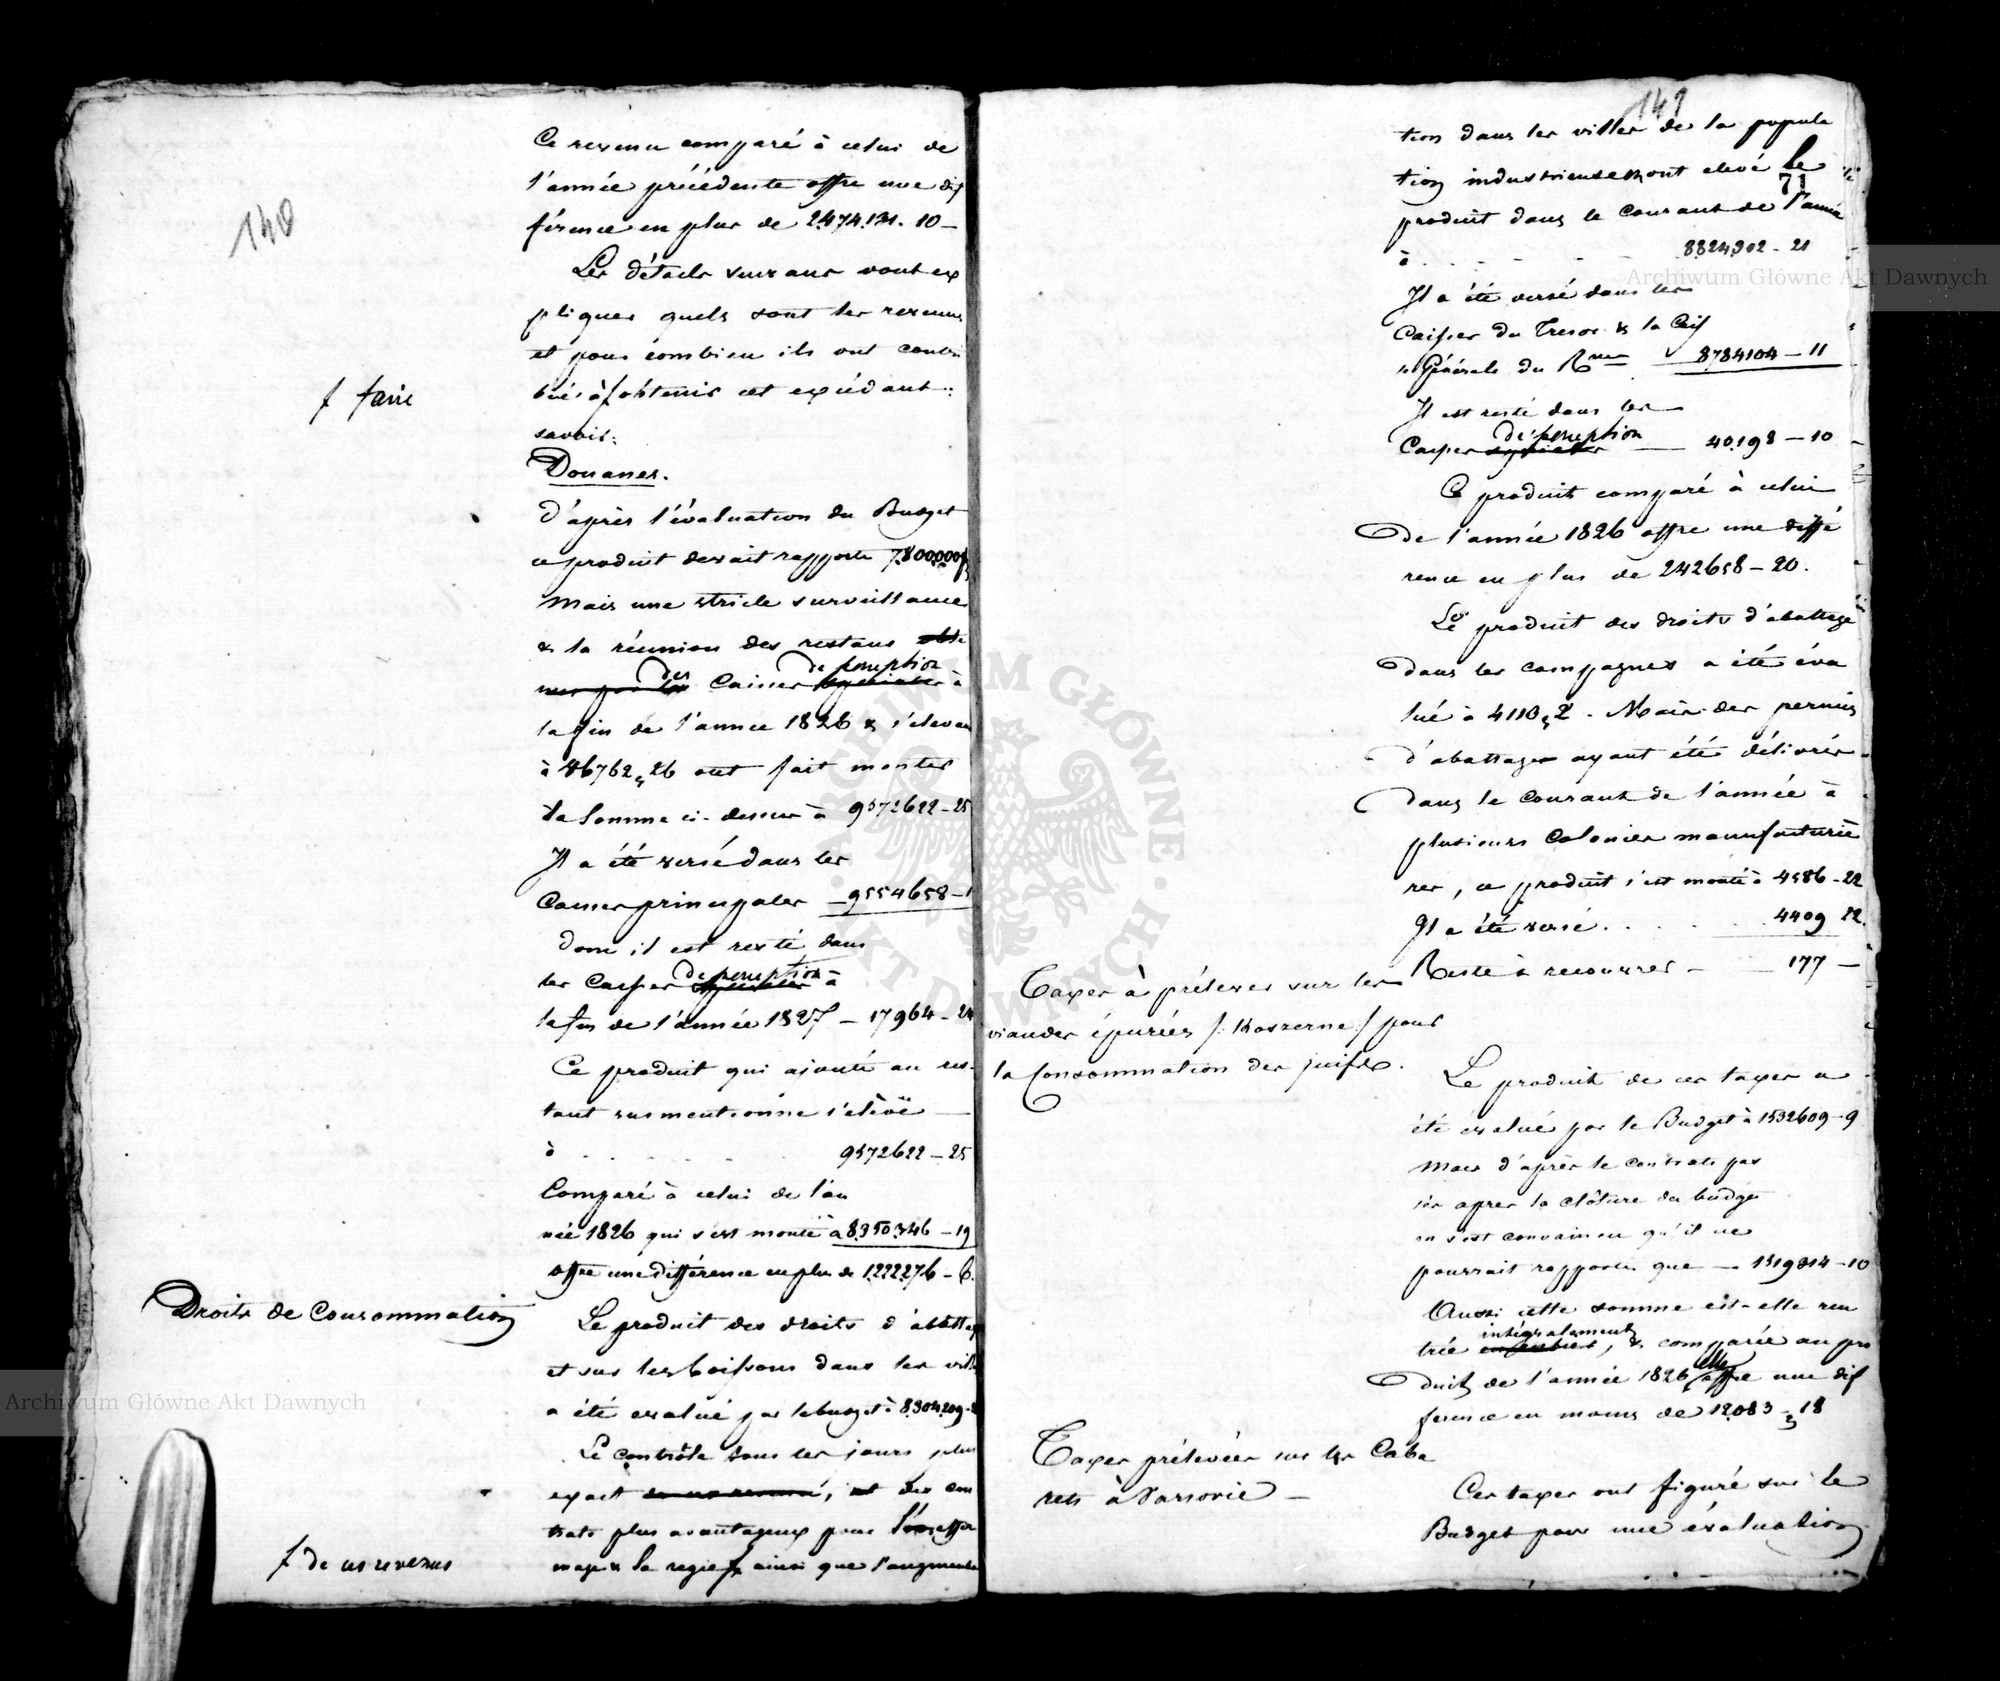 140
Ce revenu comparé à celui de
l'année précédente offre une dif
férence en plus de 2.474.131. 10 —
Les détails suivans vont ex
pliquer quels sont les revenus
et pour combien ils ont contri
bué à f obtenir cet excédant :
f faire
savoir:
Douanes.
D'après l'évaluation du Budget
ce produit devait rapporter 7.800.000 f
Mais une stricte surveillance
& la réunion des restans
des Caisses de perception à
la fin de l'année 1826 & s'élevan
à 46762,26 ont fait monter
la Somme ci-dessus à 9572622 - 25
Il a été versé dans les
Caisses principales — 9554658 - 1
Donc il est resté dans
les Caisses de perception à
la fin de l'année 1827 — 17964 - 24
Ce produit qui ajouté au res-
tant susmentionné s'élève
à . . . . . . 9572622 — 25
Comparé à celui de l'an
née 1826 qui s'est monté à 8.350.346 — 19
offre une différence en plus de 1.222.276 - 6.
Droits de Consommation
Le produit des droits d'abattage
et sur les boissons dans les vill
a été évalué par le budget à 8.304.209 -
Le contrôle tous les jours plus
exact , des con
trats plus avantageux pour
& la regie f ainsi que l'augmenta
f de ces revenus
141
71
tion dans les villes de la popula
tion industrieuse ont elevé le
produit dans le courant de l'année
à . . . . . 8824302 - 21
Il a été versé dans les
Caisses du Tresor & la Caiss
e Générale du Rme 8784104 — 11
Il est resté dans les
Caisses de perception — 40198 — 10
Ce produit comparé à celui
de l'année 1826 offre une diffé
rence en plus de 242658 — 20.
Le produit des droits d'abattage
dans les campagnes a été éva
lué à 4110,2. Mais des permis
d'abattages ayant été délivrés
dans le courant de l'année à
plusieurs Colonies manufacturiè
res, ce produit s'est monté à 4586 - 22
Il a été versé . . . . . 4409 22.
Reste à recouvrer — — 177 —
Taxes à prélever sur les
viandes épurées /: Koszerne :/ pour
la Consommation des juifs.
Le produit de ces taxes a
été évalué par le Budget à 1532609 - 9
Mais d'après le contrats pas
sés apres la clôture du budget
on s'est convaincu qu'il ne
pourrait rapporter que — 1519314 - 10
Aussi cette somme est-elle ren
trée intégralement, & comparée au pro
duit de l'année 1826 elle offre une dif
férence en moins de 12.083 - 18
Taxes prélevées sur les Caba
rets à Varsovie —
Ces taxes ont figuré sur le
Budget pour une évaluation
Archiwum Główne Akt Dawnych
Archiwum Główne Akt Dawnych
ARCHIWUM GŁÓWNE · AKT DAWNYCH ·